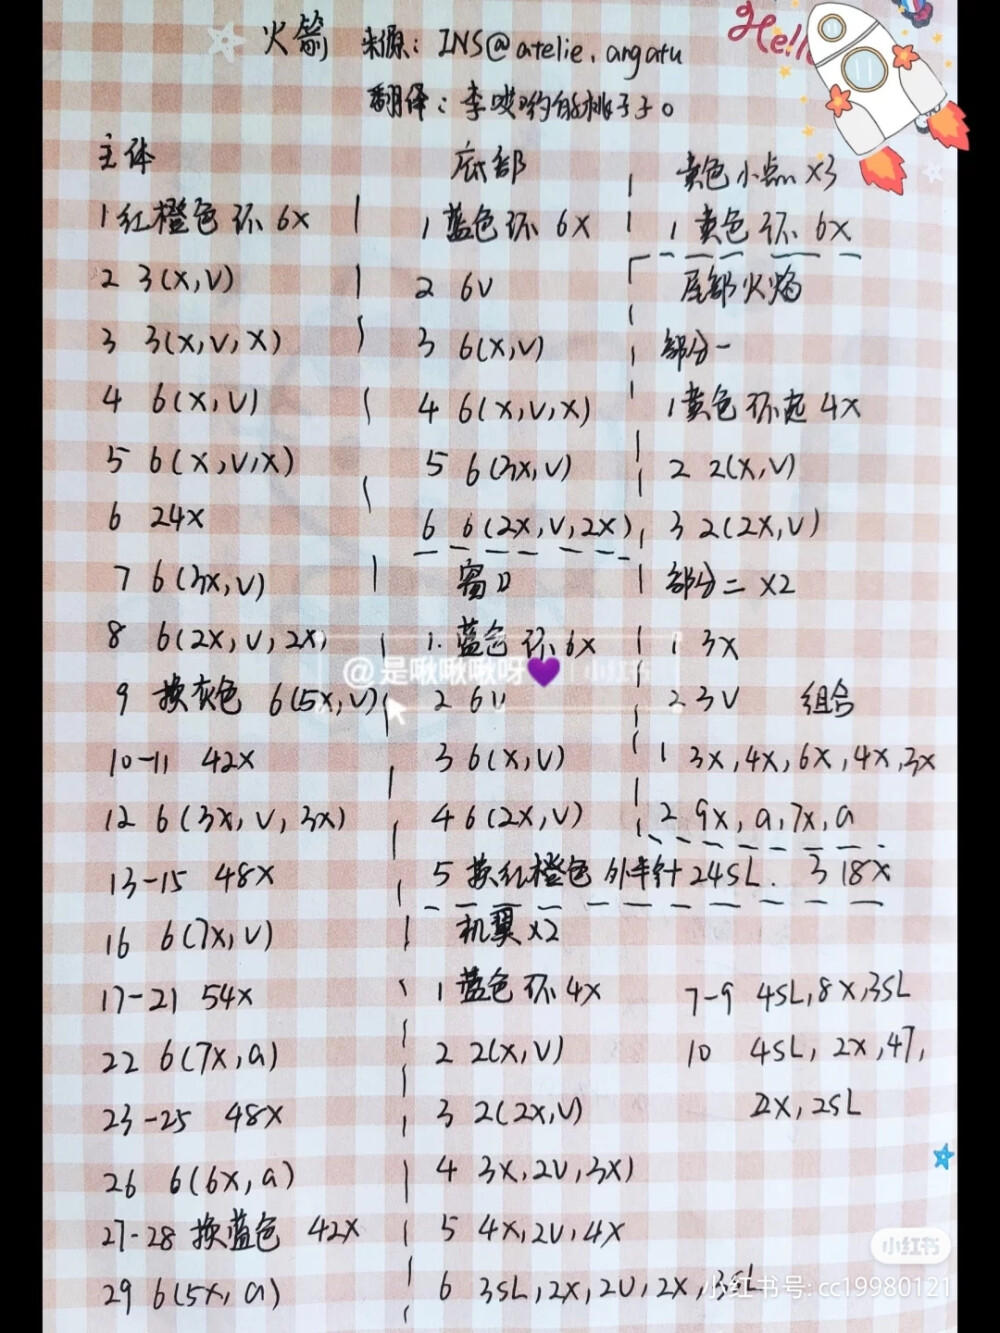 火箭 来源: INS@atelie.angatu
Hello
翻译:李哎哟的桃子子。
主体
1 红橙色环 6X
2 3(X,V)
3 3(X,V,X)
4 6(X,V)
5 6(X,V,X)
6 24X
7 6(3X,V)
8 6(2X,V,2X)
9 换灰色 6(5X,V)
10-11 42X
12 6(3X,V,3X)
13-15 48X
16 6(7X,V)
17-21 54X
22 6(7X,a)
23-25 48X
26 6(6X,a)
27-28 换蓝色 42X
29 6(5X,a)
底部
1 蓝色环 6X
2 6V
3 6(X,V)
4 6(X,V,X)
5 6(3X,V)
6 6(2X,V,2X)
窗口
1. 蓝色环 6X
2 6V
3 6(X,V)
4 6(2X,V)
5 换红橙色 外半针 24SL.
机翼X2
1 蓝色环 4X
2 2(X,V)
3 2(2X,V)
4 3X,2V,3X)
5 4X,2V,4X
6 3SL,2X,2V,2X,3SL
7-9 4SL,8X,3SL
10 4SL,2X,4T,
2X,2SL
黄色小点X3
1 黄色环 6X
尾部火焰
部分一
1 黄色环起 4X
2 2(X,V)
3 2(2X,V)
部分二 X2
1 3X
2 3V
组合
1 3X,4X,6X,4X,3X
2 9X,a,7X,a
3 18X
@是啾啾啾呀💜 小红书
小红书
小红书号: cc19980121